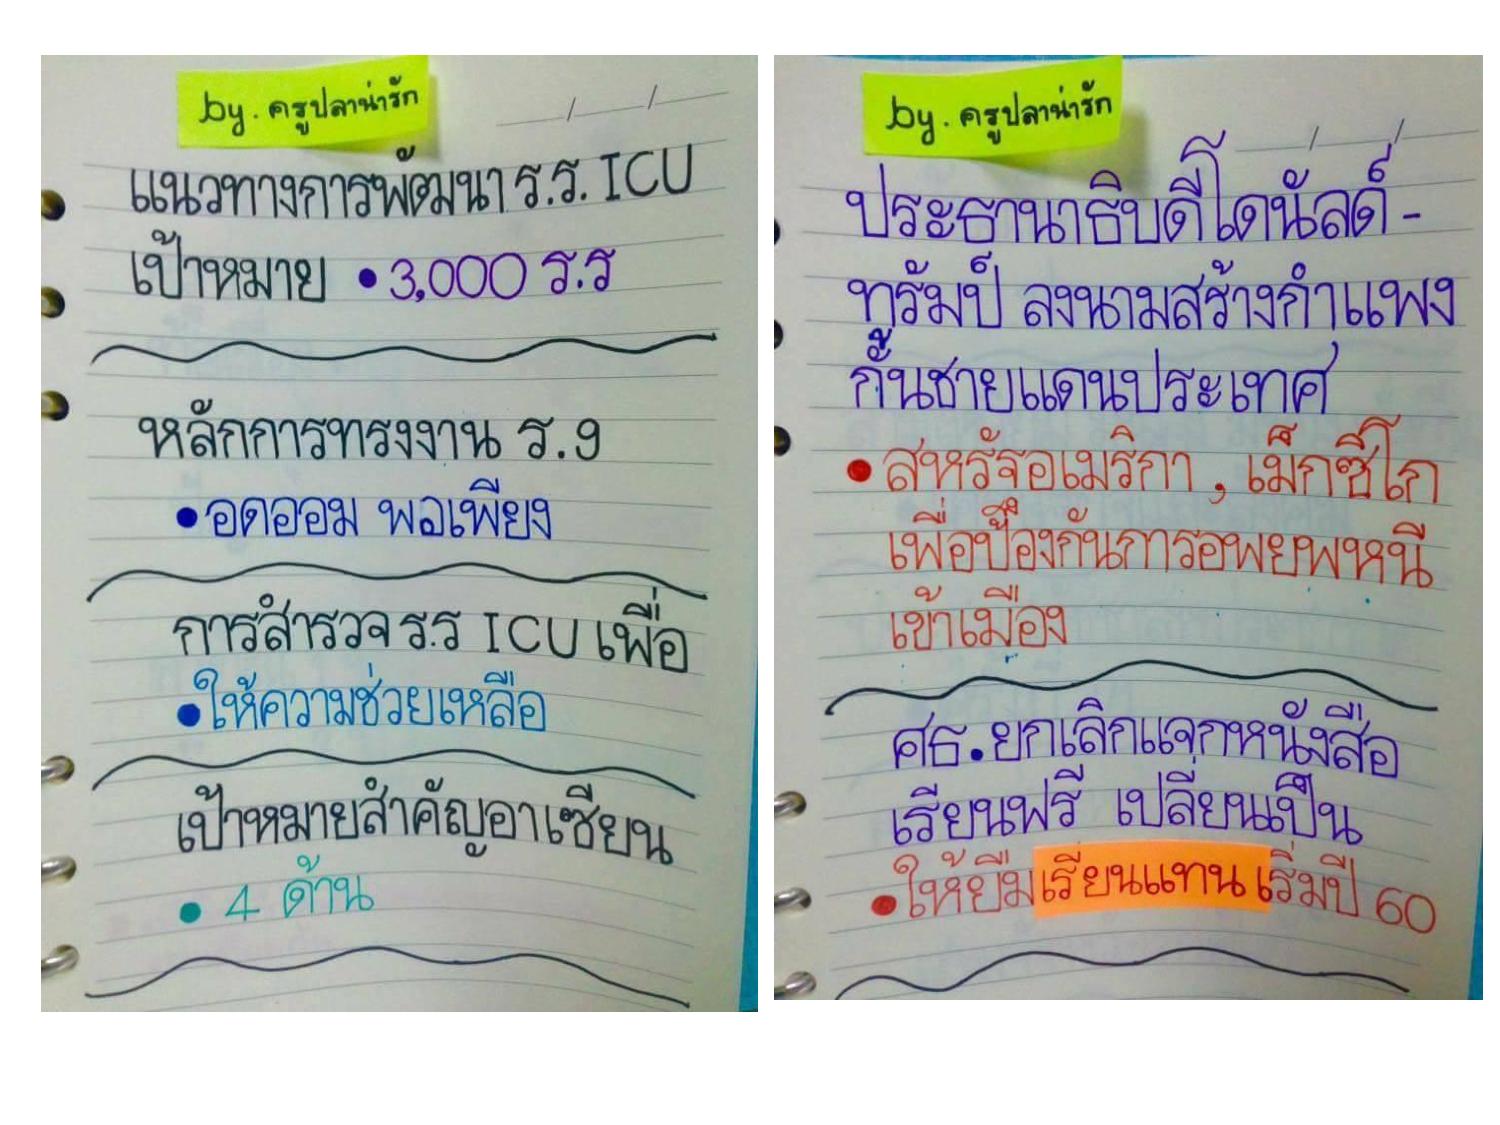 by. ครูปลาน่ารัก
แนวทางการพัฒนา ร.ร. ICU
เป้าหมาย • 3,000 ร.ร
หลักการทรงงาน ร.9
• อดออม พอเพียง
การสำรวจ ร.ร ICU เพื่อ
• ให้ความช่วยเหลือ
เป้าหมายสำคัญอาเซียน
• 4 ด้าน
by. ครูปลาน่ารัก
ประธานาธิบดีโดนัลด์ -
ทรัมป์ ลงนามสร้างกำแพง
กั้นชายแดนประเทศ
• สหรัฐอเมริกา , เม็กซิโก
เพื่อป้องกันการอพยพหนี
เข้าเมือง
ศธ. ยกเลิกแจกหนังสือ
เรียนฟรี เปลี่ยนเป็น
• ให้ยืมเรียนแทน เริ่มปี 60